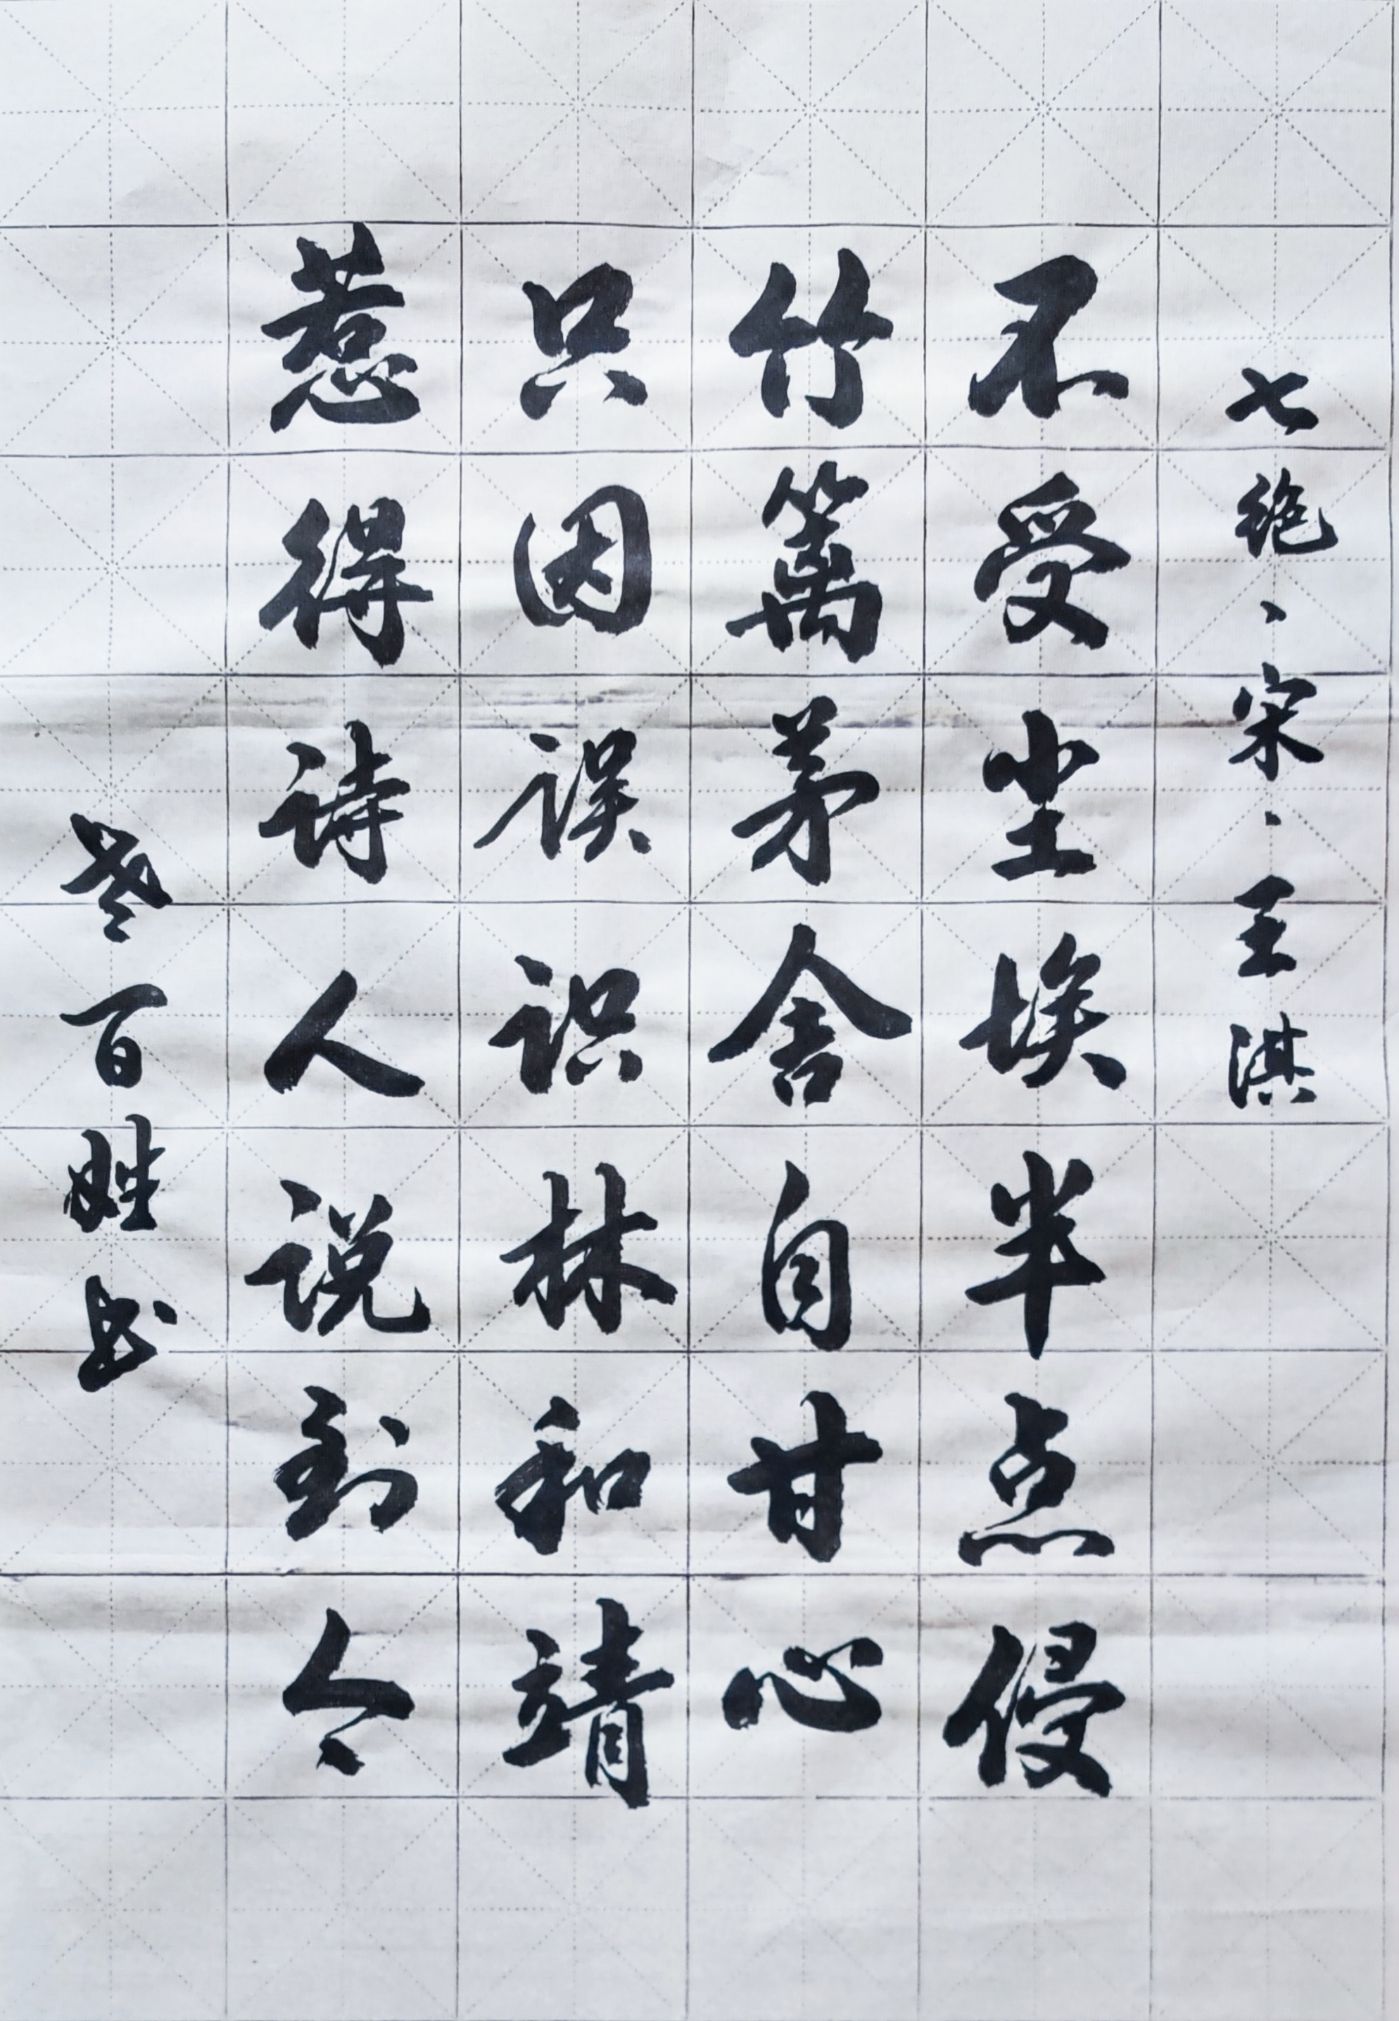 七绝、宋·王淇
不受尘埃半点侵
竹篱茅舍自甘心
只因误识林和靖
惹得诗人说到今
老百姓书